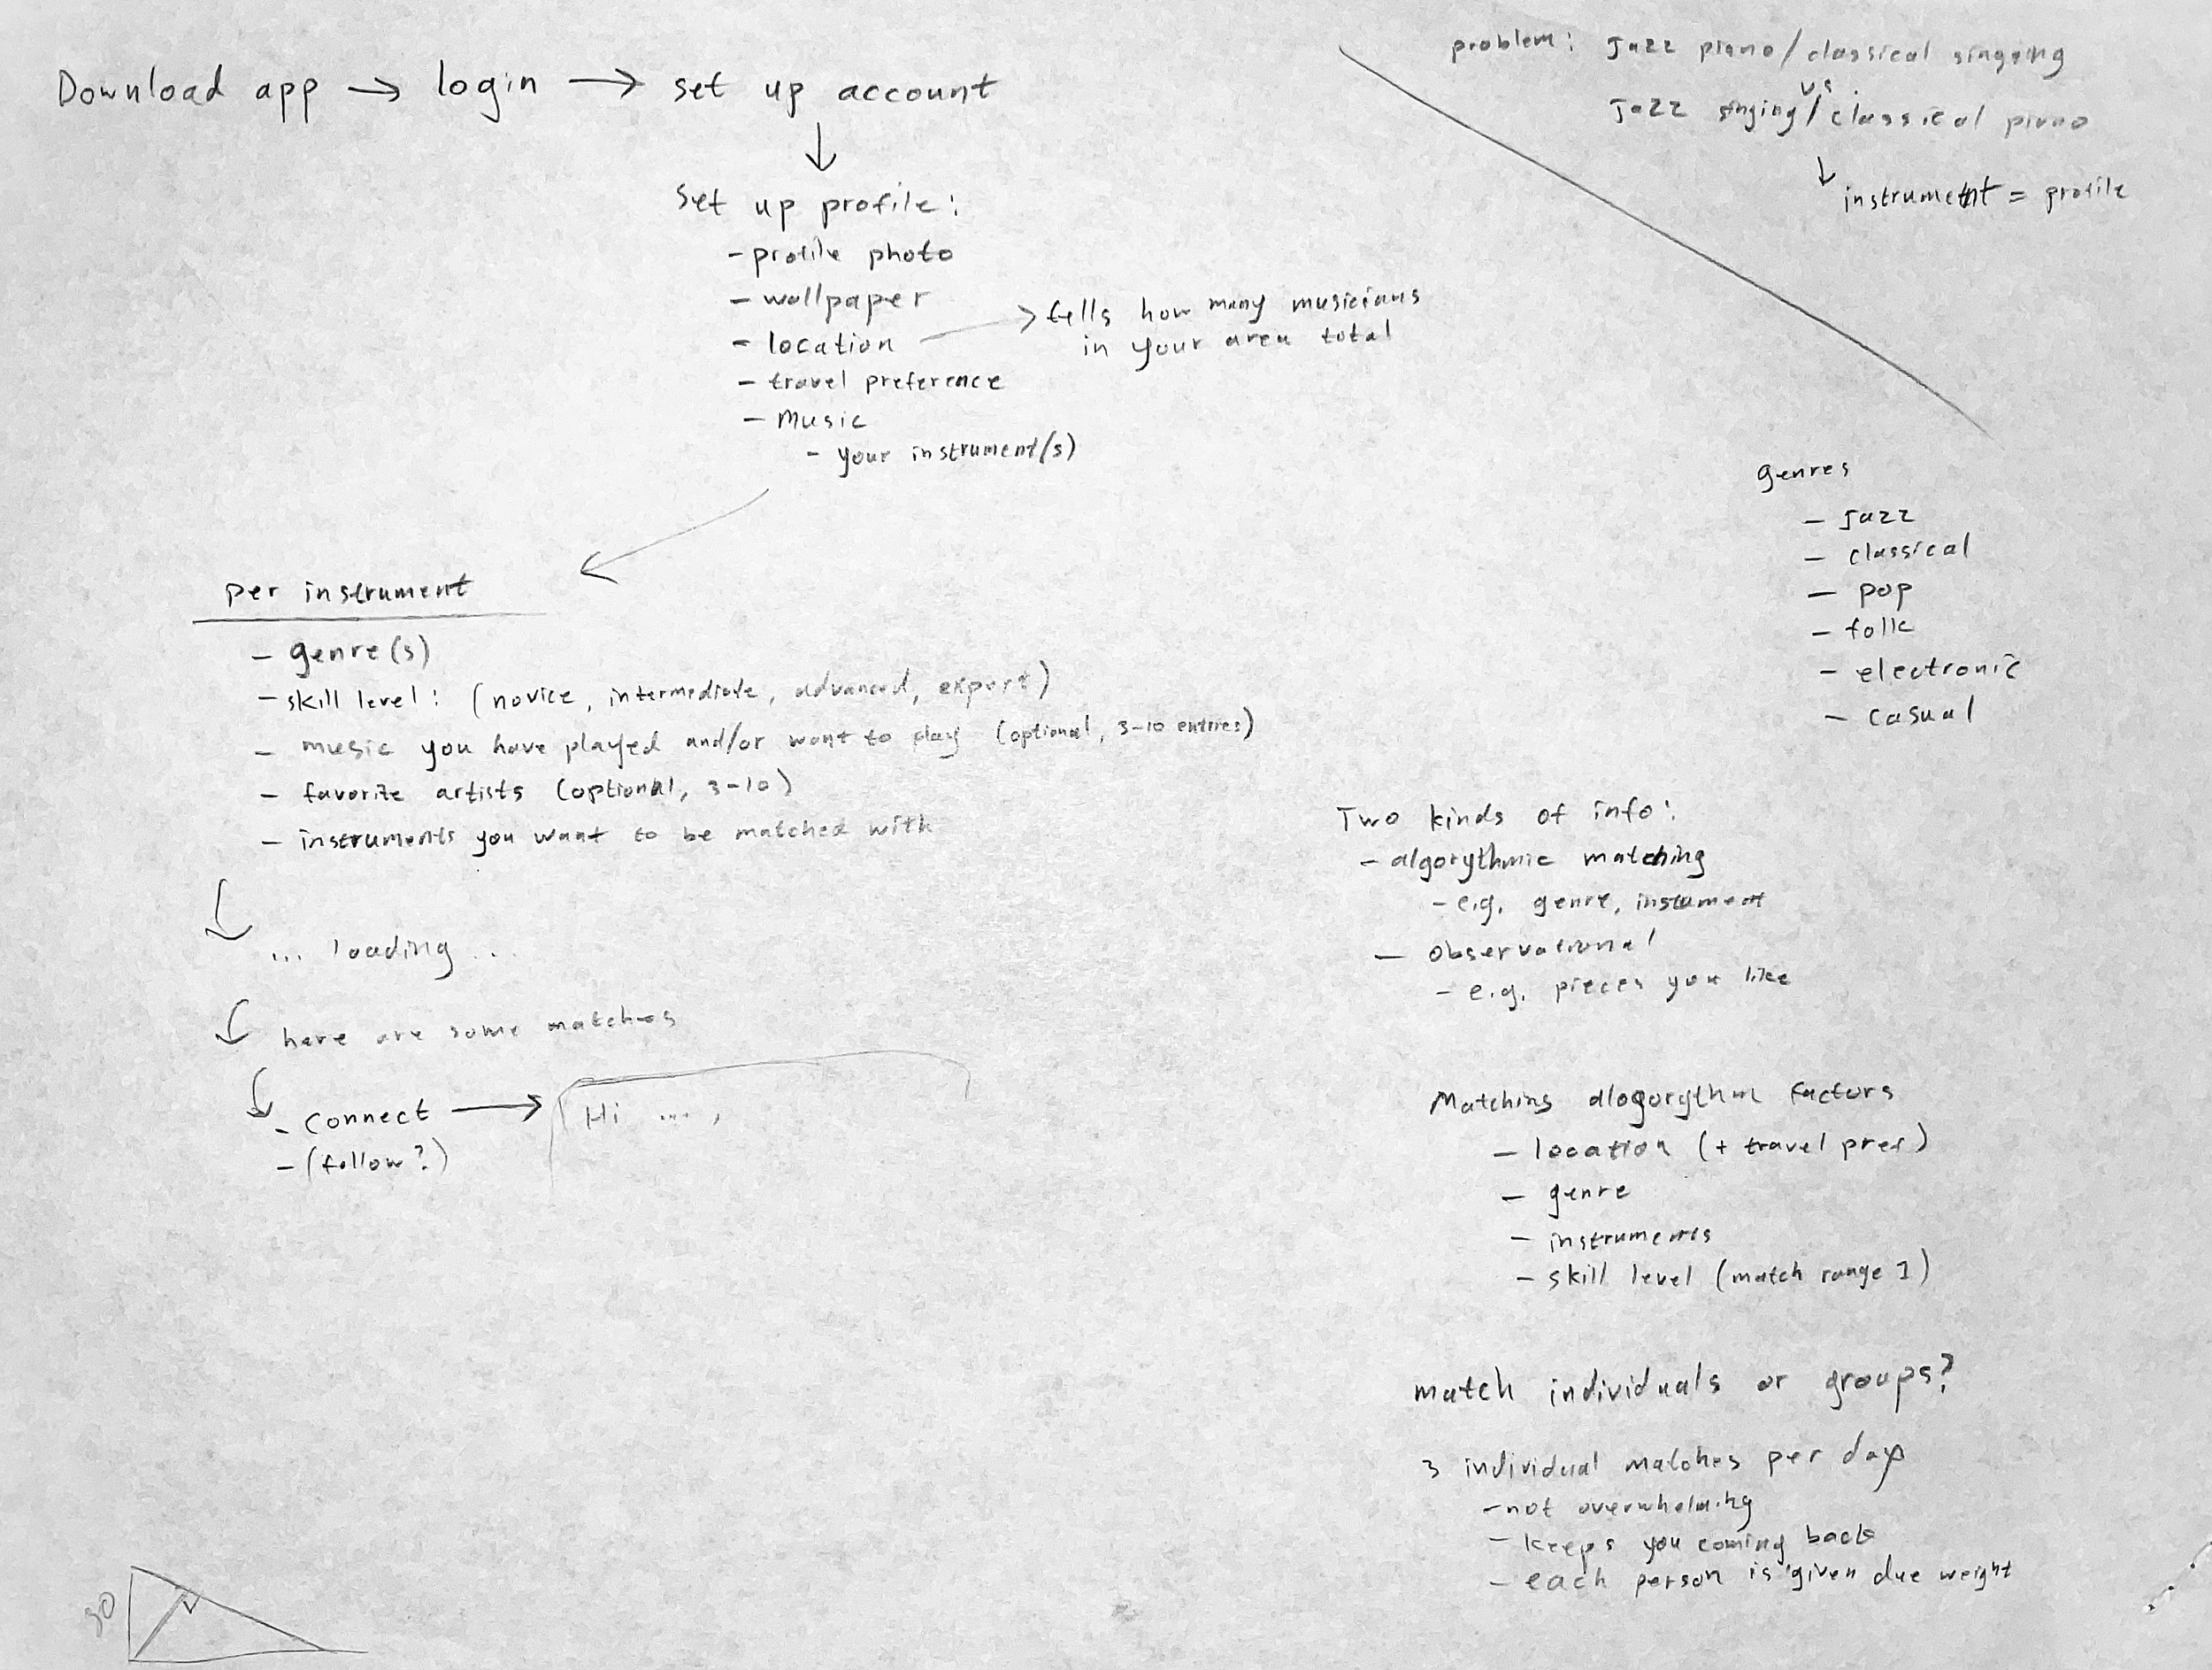 Download app → login → set up account
↓
Set up profile:
- profile photo
- wallpaper
- location → tells how many musicians
in your area total
- travel preference
- Music
- your instrument(s)
per instrument
- genre(s)
- skill level: (novice, intermediate, advanced, expert)
- music you have played and/or want to play (optional, 3-10 entries)
- favorite artists (optional, 3-10)
- instruments you want to be matched with
... loading ...
here are some matches
- connect → Hi ...,
- (follow?)
problem: Jazz piano/classical singing
vs.
Jazz singing/classical piano
↓
instrument = profile
genres
- Jazz
- classical
- pop
- folk
- electronic
- casual
Two kinds of info:
- algorythmic matching
- e.g. genre, instument
- observational
- e.g. pieces you like
Matching alogorythm factors
- location (+ travel pref)
- genre
- instruments
- skill level (match range 1)
match individuals or groups?
3 individual matches per day
- not overwhelming
- keeps you coming back
- each person is given due weight